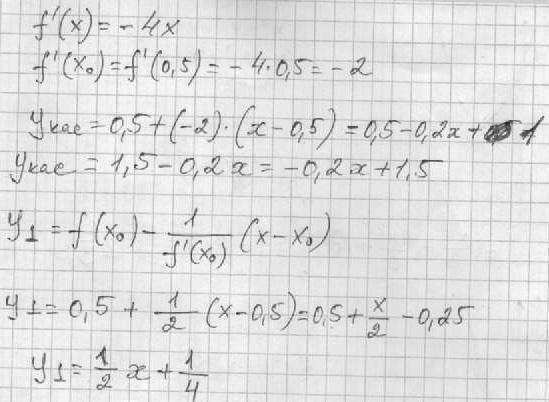 f'(x) = -4x
f'(x₀) = f'(0,5) = -4·0,5 = -2
yкас = 0,5 + (-2)·(x - 0,5) = 0,5 - 0,2x + 1
yкас = 1,5 - 0,2x = -0,2x + 1,5
y⊥ = f(x₀) - 1/f'(x₀) (x - x₀)
y⊥ = 0,5 + 1/2 (x - 0,5) = 0,5 + x/2 - 0,25
y⊥ = 1/2 x + 1/4